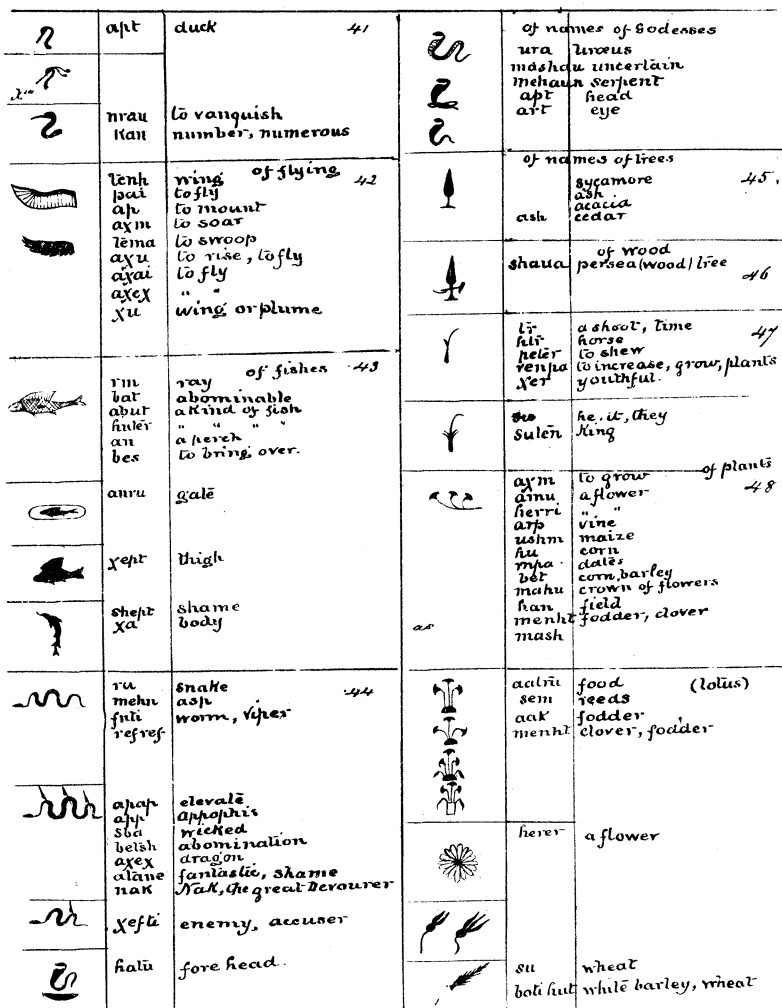 apt duck 41
nrau to vanquish
Kan number, numerous
of flying 42
tenh wing
pai to fly
ap to mount
axm to soar
tema to swoop
axu to rise, to fly
axai to fly
axex " "
xu wing or plume
of fishes 43
rm ray
bat abominable
abut a kind of fish
huter " " " "
an a perch
bes to bring over.
anru gate
xept thigh
shept shame
xa body
ru snake 44
mehn asp
fnti worm, viper
refref
apap elevate
app Appophis
sba wicked
betsh abomination
axex dragon
atane fantastic, shame
nak Nak, the great Devourer
xefti enemy, accuser
hatu fore head.
of names of Godesses
ura Uræus
mashdu uncertain
mehaun serpent
apt head
art eye
of names of trees
sycamore 45.
ash
acacia
ash cedar
of wood
shaua persea (wood) tree
46
tr a shoot, time
htr horse 47
peter to shew
renpa to increase, grow, plants
xer youthful.
su he, it, they
suten King
of plants
axm to grow
amu a flower 48
herri " "
arp vine
ushm maize
hu corn
mpa. dates
bet corn, barley
mahu crown of flowers
han field
menht fodder, clover
as
mash
aatru food (lotus)
sem reeds
aak fodder
menht clover, fodder
herer a flower
su wheat
boti hut white barley, wheat